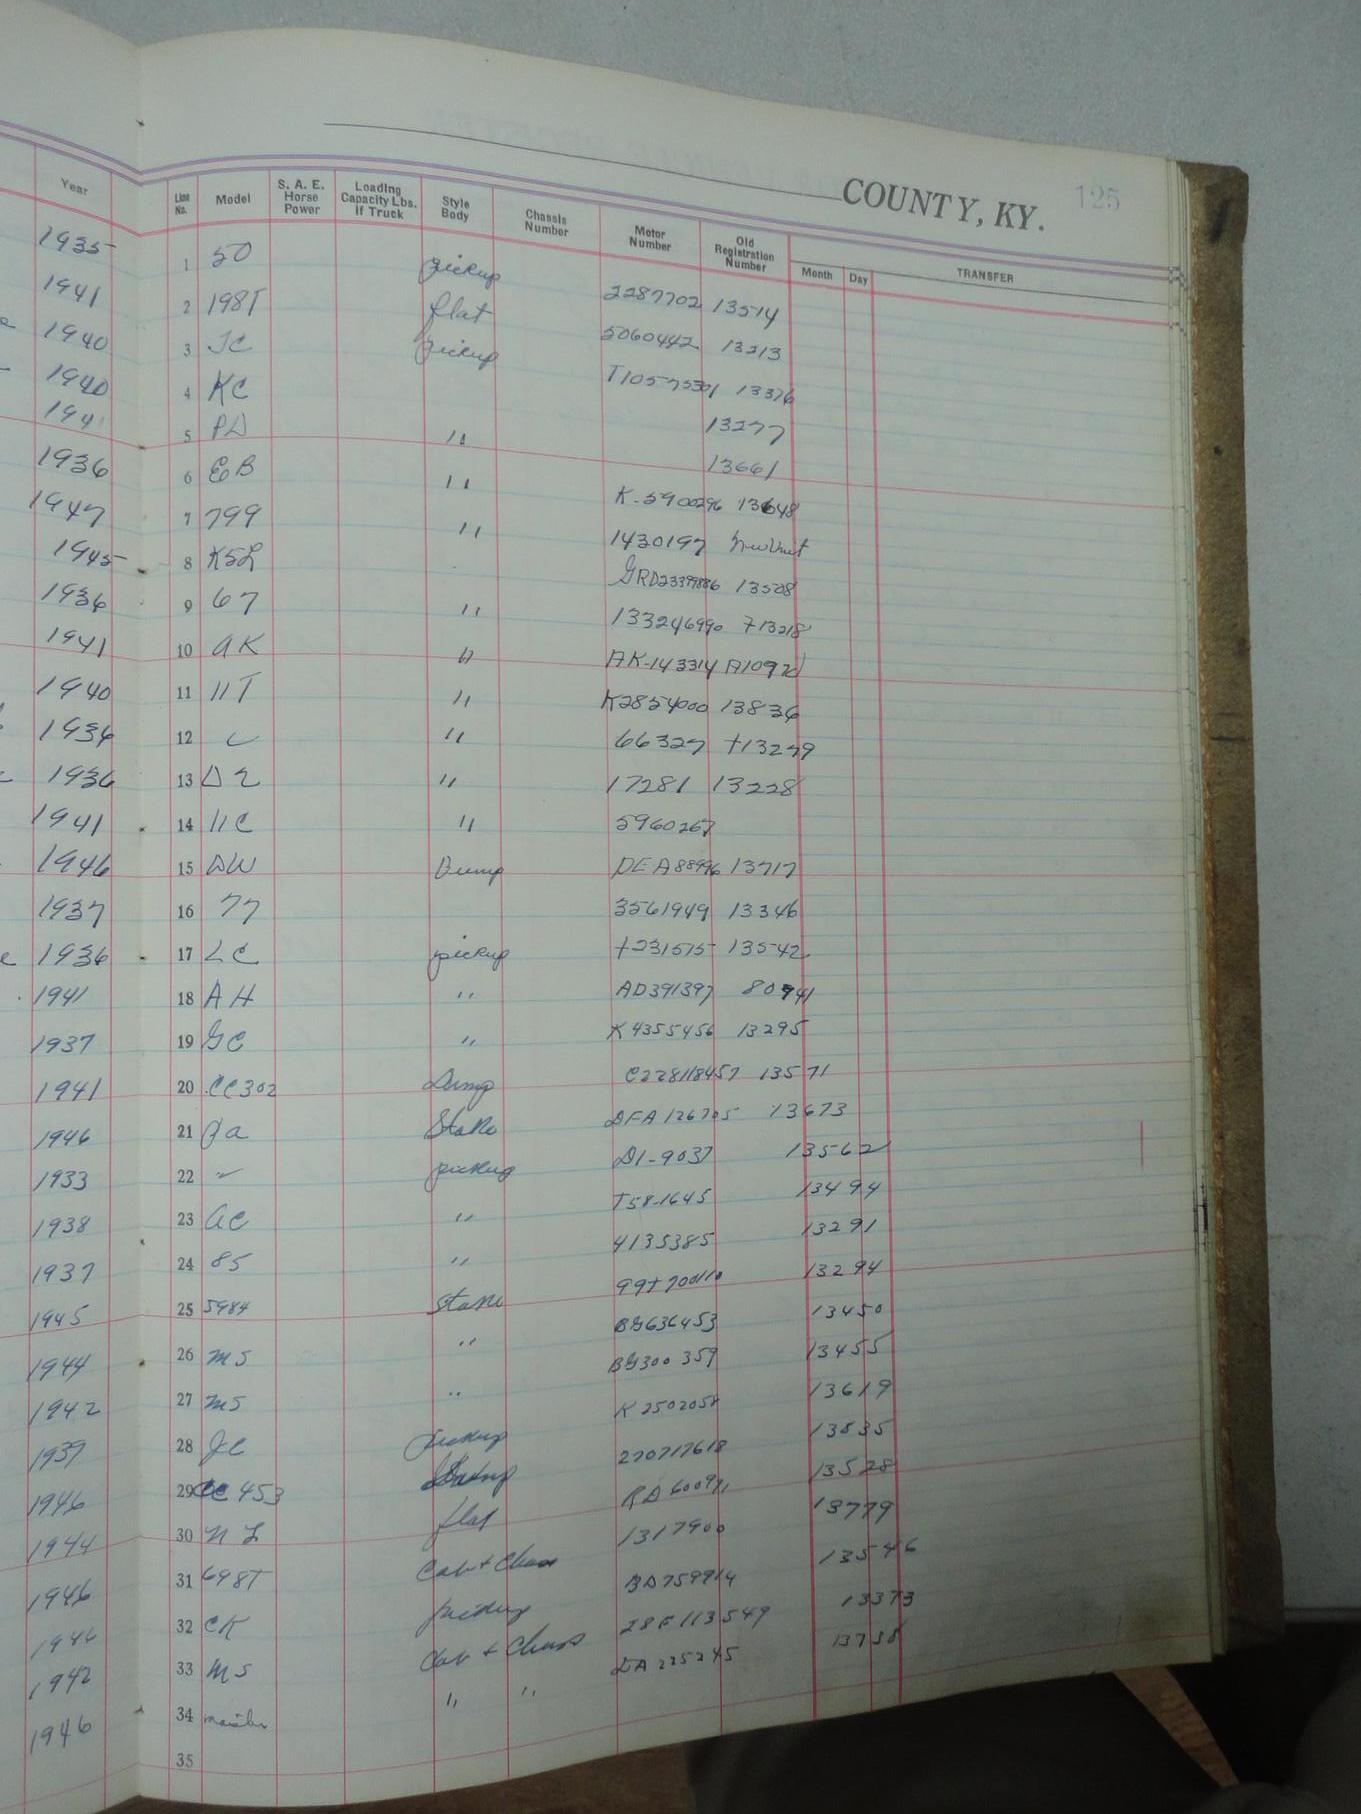 COUNTY, KY. 125
Year Line No. Model S. A. E. Horse Power Loading Capacity Lbs. If Truck Style Body Chassis Number Motor Number Old Registration Number Month Day TRANSFER
1935 1 50 pickup 2287702 13514
1941 2 198T flat 5060442 13213
1940 3 JC pickup T10575301 13376
1940 4 KC 13277
1941 5 PD " 13661
1936 6 EB " K-5900296 13648
1947 7 799 " 1430197 New Unit
1945 8 K5L GRD2339886 13508
1936 9 67 " 133246990 713218
1941 10 AK " AK-143314 A10920
1940 11 11T " K2854000 13836
1936 12 " 66327 +13279
1936 13 D2 " 17281 13228
1941 14 11C " 5960267
1946 15 DW Dump DEA88996 13717
1937 16 77 3561949 13346
1936 17 LC pickup +231575 13542
1941 18 AH " AD391397 80941
1937 19 GC " K4355456 13295
1941 20 CC302 Dump C228118457 13571
1946 21 Ja Stake DFA126705 13673
1933 22 pickup D1-9037 13562
1938 23 AC " T58-1645 13494
1937 24 85 " 4135385 13291
1945 25 5984 Stake 99+700110 13294
1944 26 MS " BG636453 13450
1942 27 MS " BG300359 13455
1939 28 JC pickup K2502058 13619
1946 29 CC453 Dump 270717618 13535
1944 30 NL flat RD60091 13528
1946 31 698T Cab + Chass 1317900 13779
1946 32 CK pickup BD759914 13546
1942 33 MS Cab + Chass 28F113549 13373
1946 34 " " EA225245 13738
35